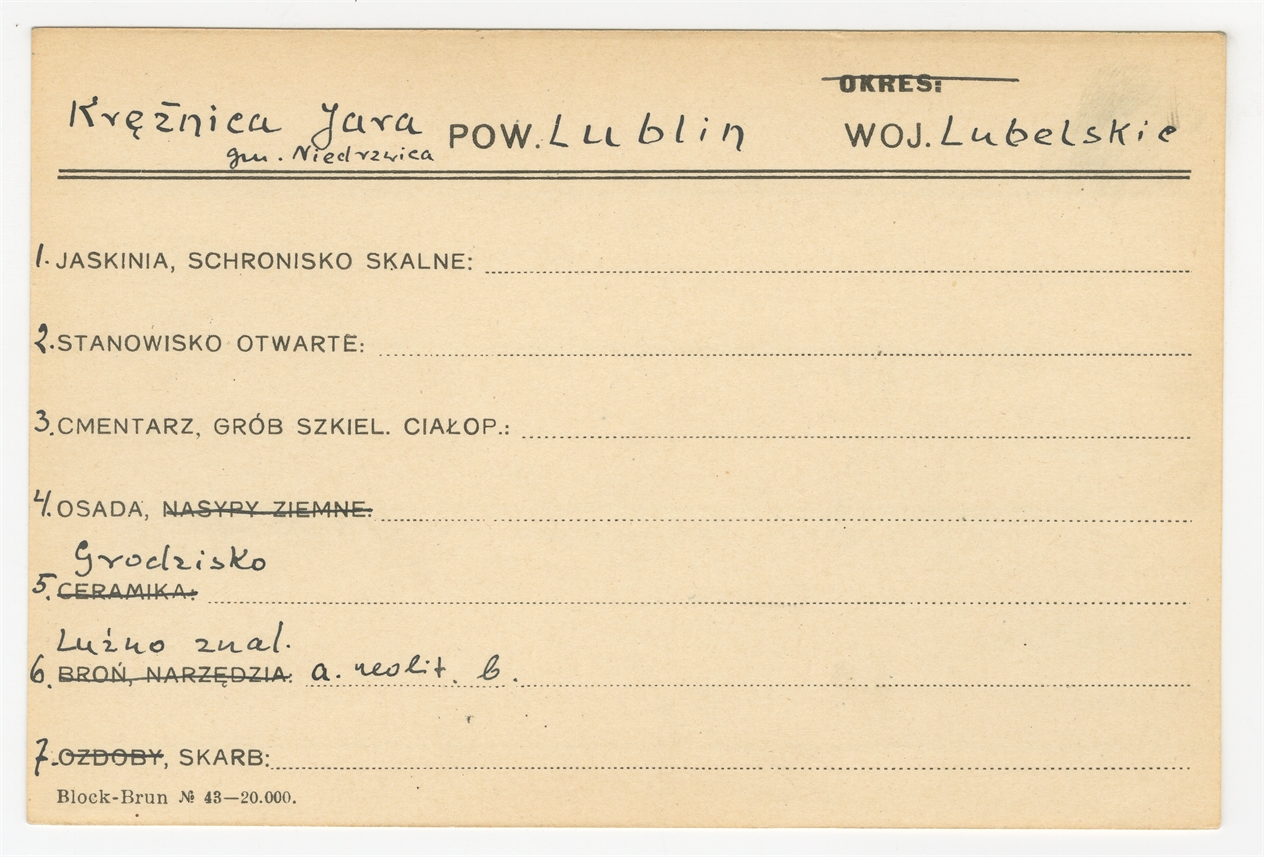 OKRES:
Krężnica Jara POW. Lublin WOJ. Lubelskie
gm. Niedrzwica
1. JASKINIA, SCHRONISKO SKALNE:
2. STANOWISKO OTWARTE:
3. CMENTARZ, GRÓB SZKIEL. CIAŁOP.:
4. OSADA, NASYPY ZIEMNE:
Grodzisko
5. CERAMIKA:
Luźno znal.
6. BROŃ, NARZĘDZIA: a. neolit. b.
7. OZDOBY, SKARB:
Block-Brun № 43—20.000.